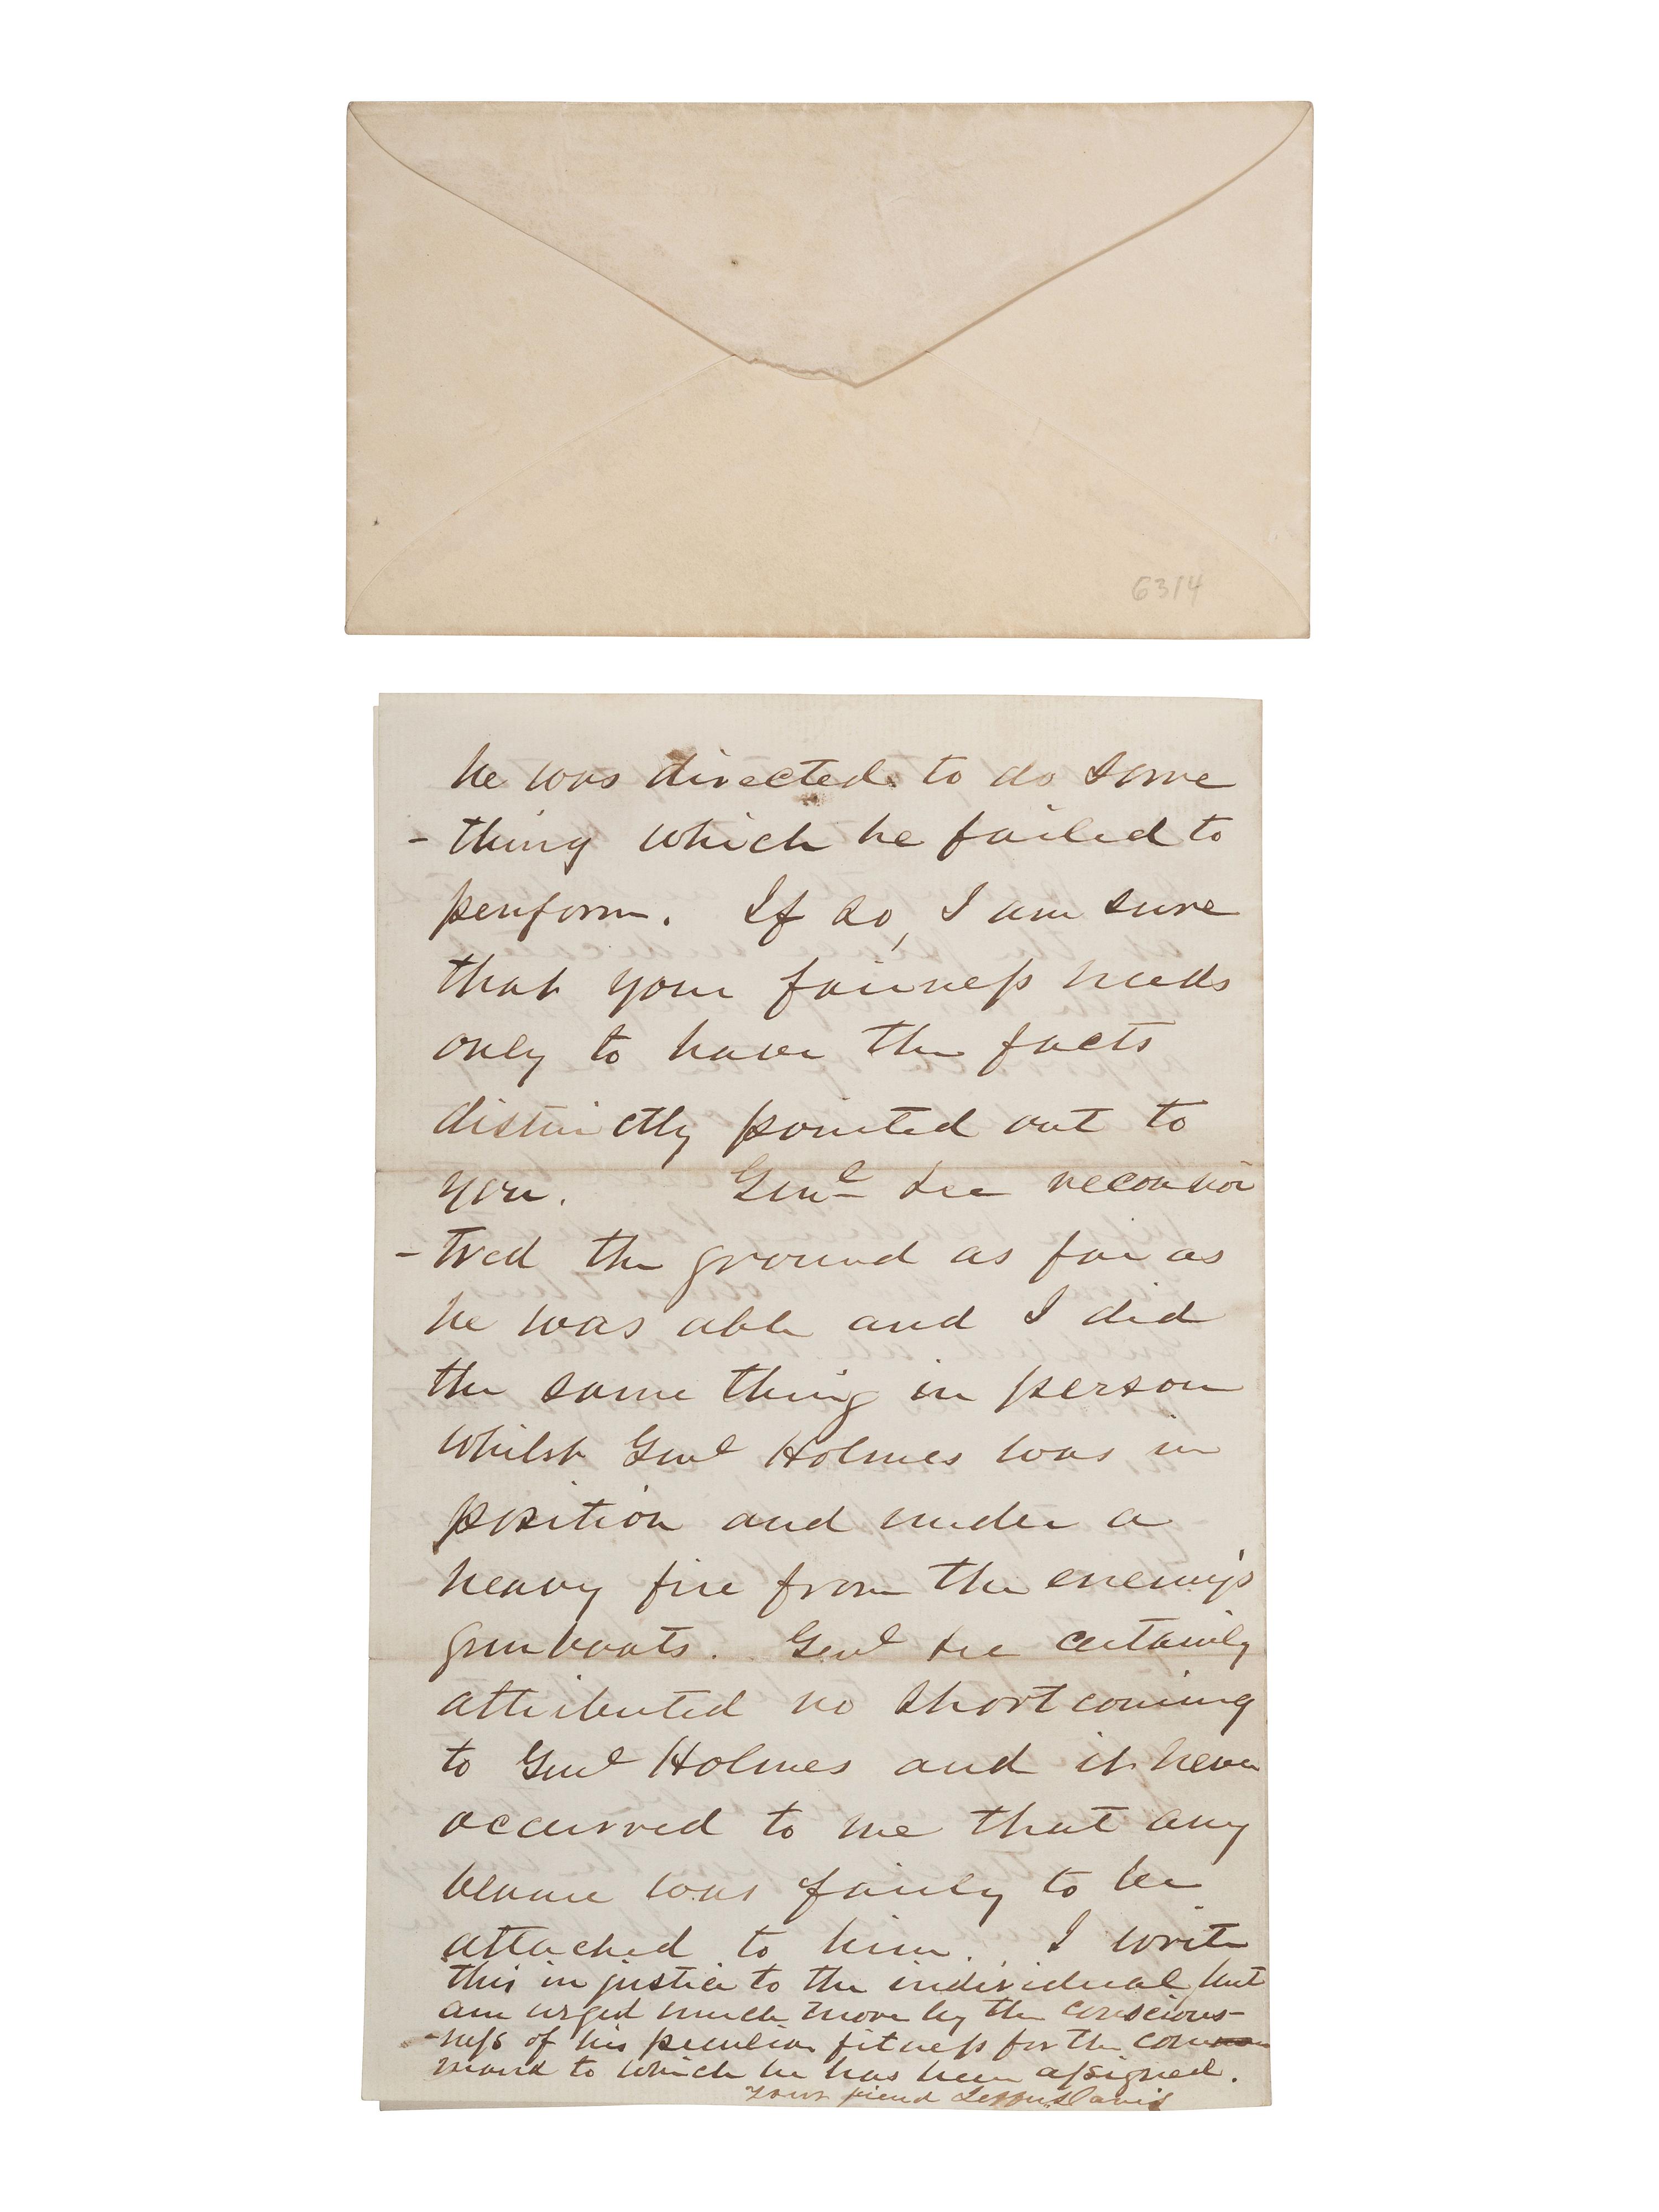 6314
he was directed to do some
-thing which he failed to
perform. If so, I am sure
that your fairness needs
only to have the facts
distinctly pointed out to
you. Genl Lee reconnoi
-tred the ground as far as
he was able and I did
the same thing in person
whilst Genl Holmes was in
position and under a
heavy fire from the enemy's
gunboats. Genl Lee certainly
attributed no shortcoming
to Genl Holmes and it never
occurred to me that any
blame was fairly to be
attached to him. I write
this in justice to the individual, but
am urged much more by the conscious-
-ness of his peculiar fitness for the com
mand to which he has been assigned.
Your friend Jeffn. Davis